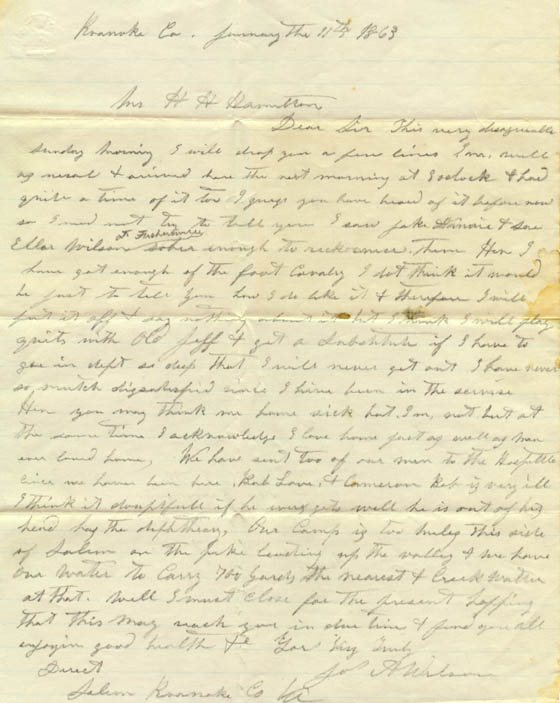 Roanoke Co. January the 11th 1863
Mr H H Hamilton
Dear Sir This very disagreeable
Sunday Morning I will drop you a few lines I am, well
as usual & arived here the next morning at 8 oclock & had
quite a time of it too I guess you have heard of it before now
so I need not try to tell you I saw Jake & saw
at Fishersville
Ellas Wilson sober enough to reckognise, them Hen I
have got enough of the foot Cavalry I dot think it would
be just to tell you how I do like it & therefore I will
put it off & say nothing about it but I think I will play
quits with Old Jeff & get a Substitute if I have to
goe in dept so deep that I will never get out I have never
so mutch dissatisfied since I have been in the servise
Hen you may think me home sick but I'm, not but at
the same time I acknowledge I love home just as well as man
ever loved home, We have sent too of our men to the Hospittle
since we have been here Rob Love, & Cameron Rob is very ill
I think it douptfull if he ever gets well he is out of his
head has the diphtheary, Our Camp is too miles this side
of Salem on the pike leading up the valley & we have
our Water to Carry 700 yards the nearest & Creek Watter
at that. Well I must Close for the present hopping
that this May reach you in due time & find you all
enjoyin good health &c Yor Very Truly
Jos A Wilson
Direct
Salem Roanoke Co Va